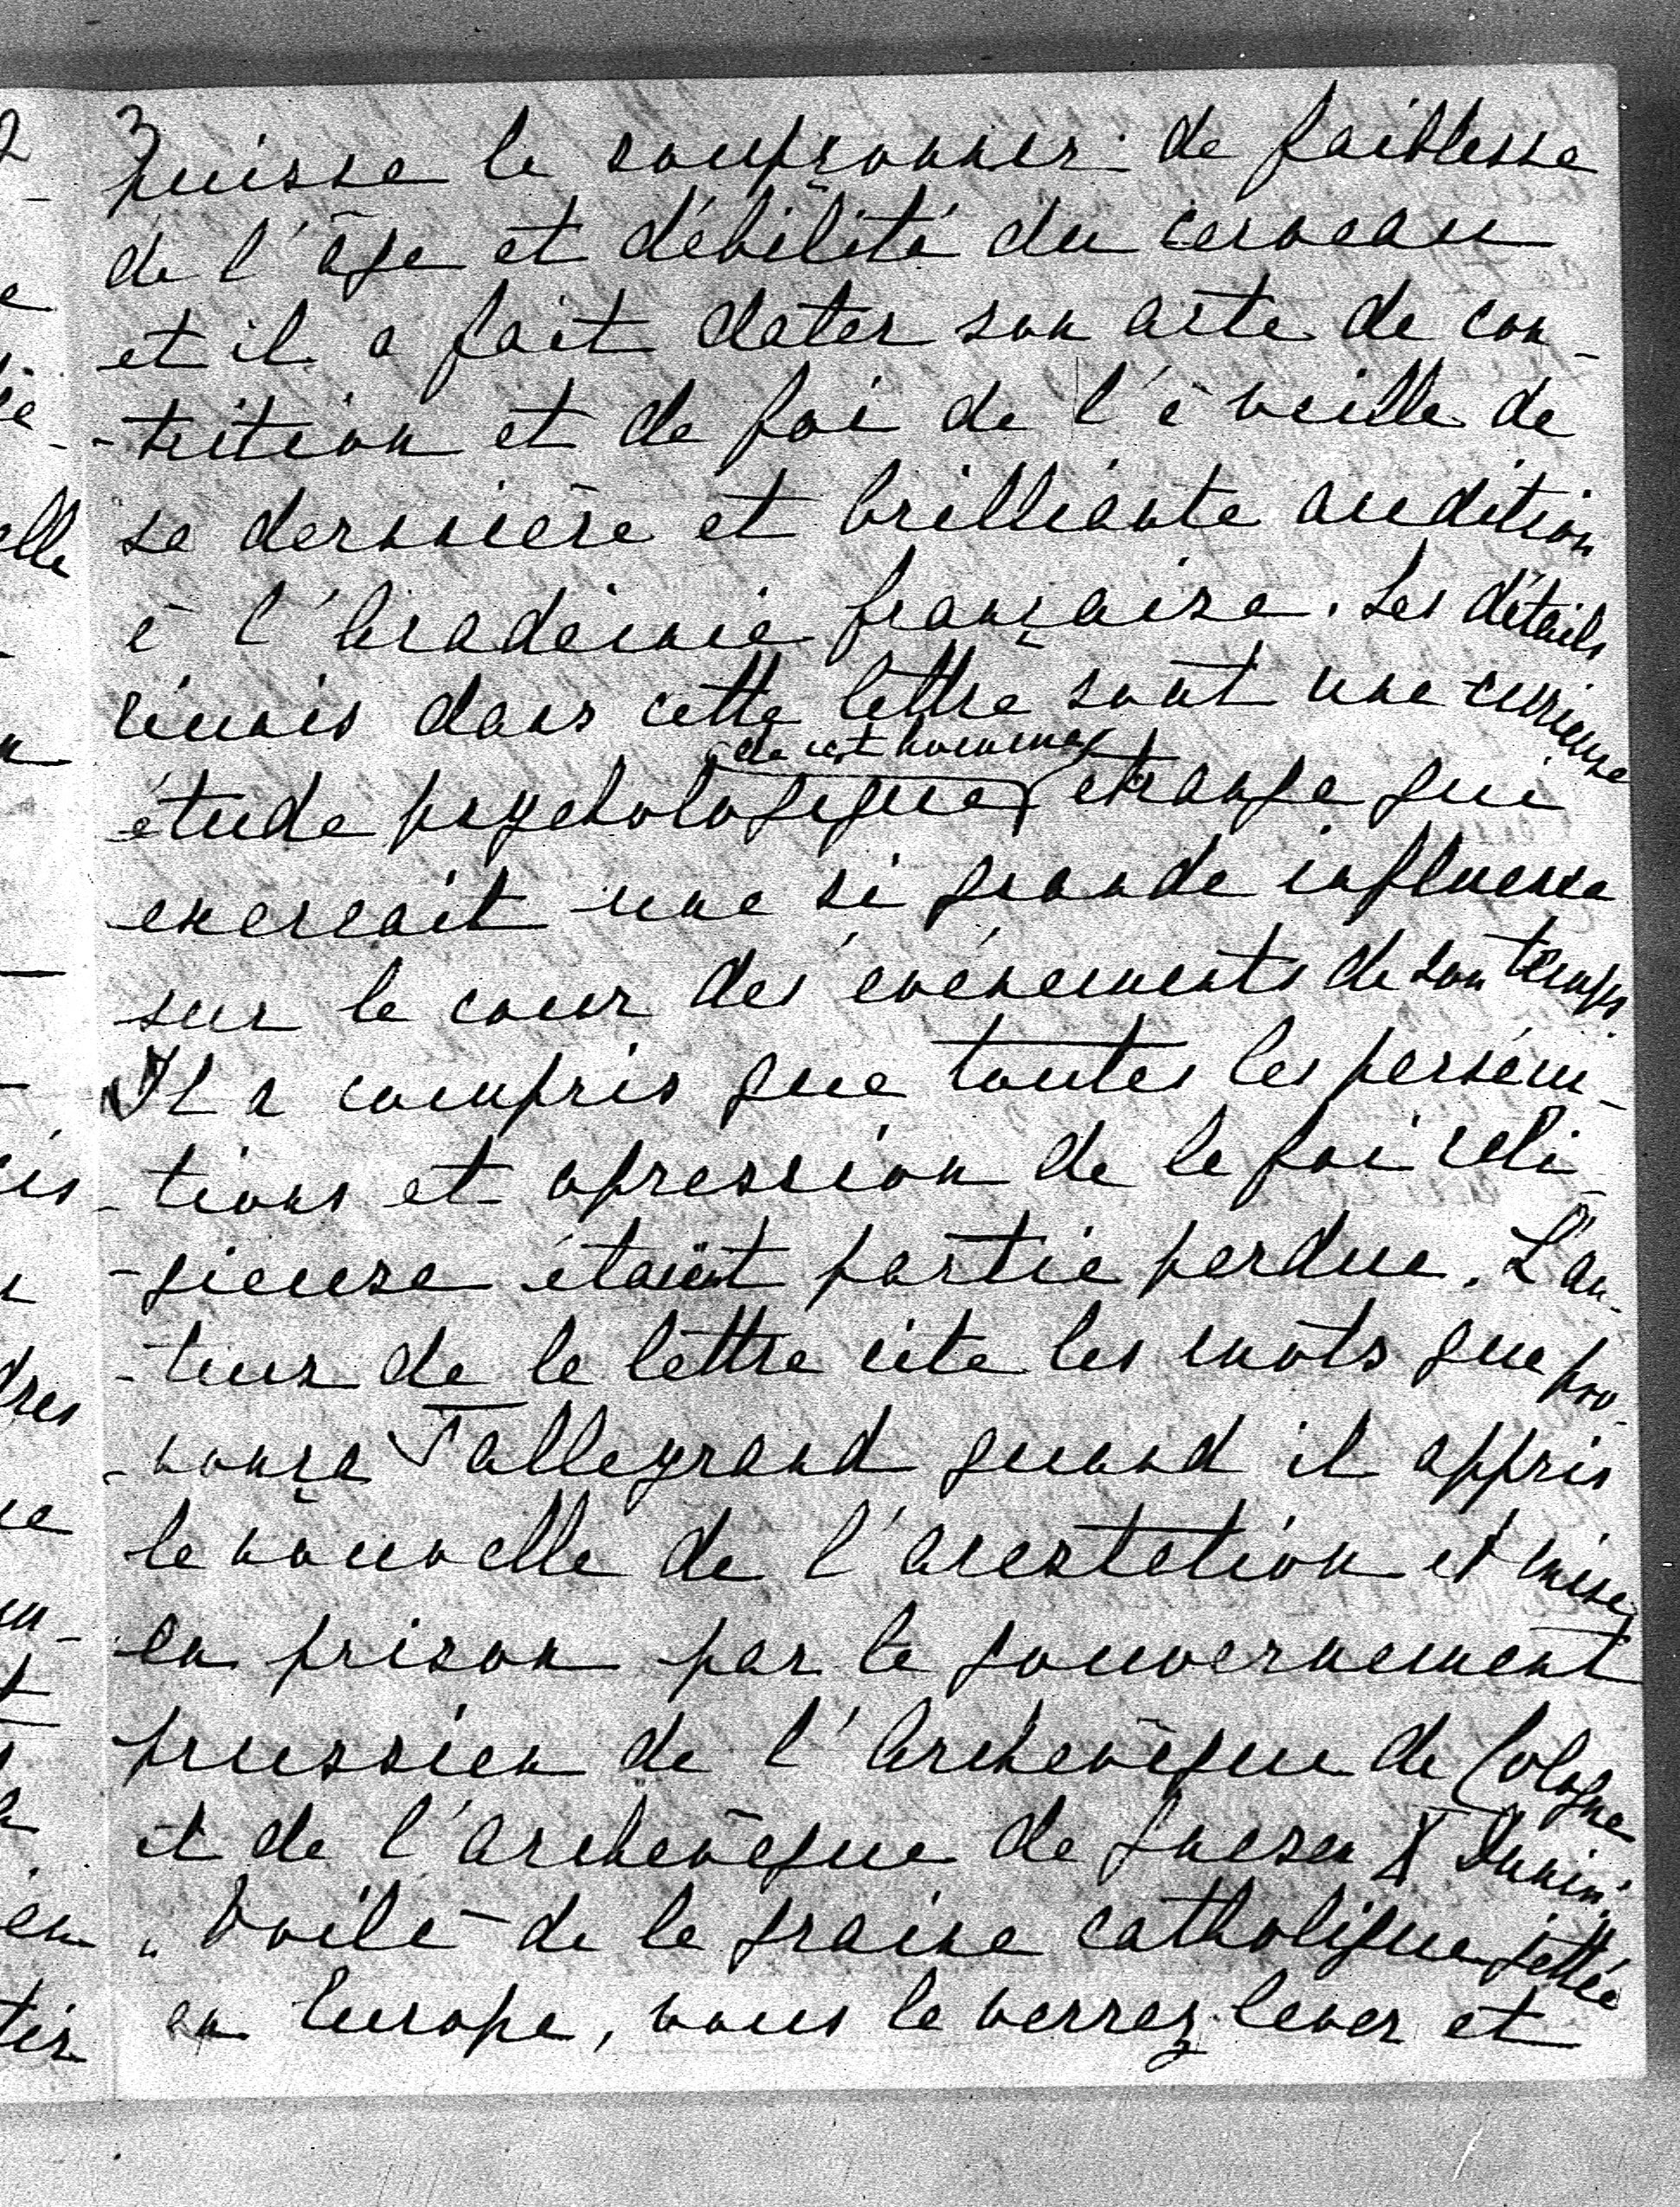 3
puisse le soupçonner de faiblesse
de l'âge et débilité du cerveau
et il a fait dater son acte de con-
-trition et de foi de l'à veille de
sa dernnière et brilliante audition
à l'Académie française. Les détails
réunis dans cette lettre sont une curieuse
de cet homme
étude psychologique étrange qui
exercait une si grande influence
sur le cour des évènements de son temps.
Il a compris que toutes les persécu-
-tions et opression de la foi reli-
-gieuse étaient partie perdue. L'au-
-teur de la lettre cite les mots que pro-
-nonça Talleyrand quand il appris
la nouvelle de l'arestation et mise
en prison par le gouvernement
prussien de l'Archevêque de Cologne
et de l'archevêque de Gnesen Dunin:
„Voilà de la graine catholique jettée
en Europe, vous la verrez lever et